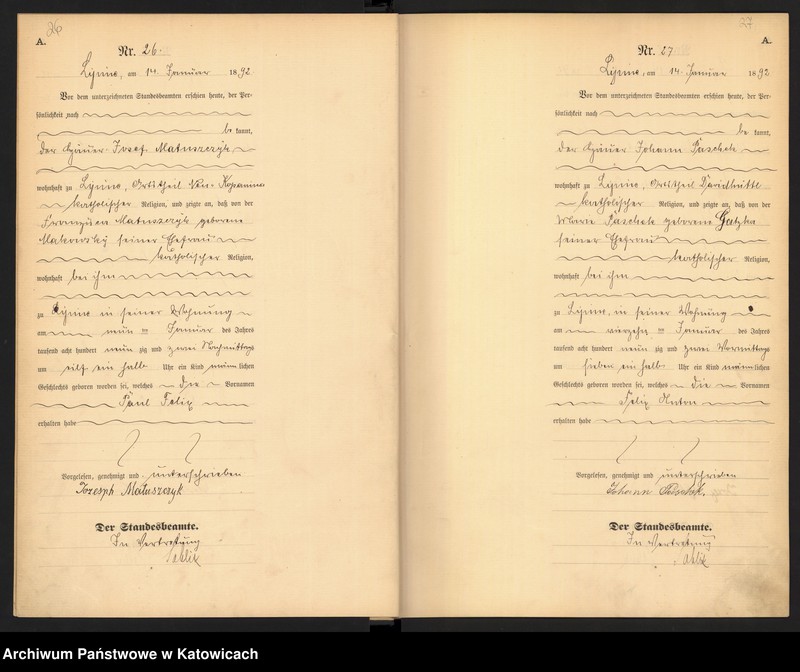 26
A.
Nr. 26.
Lipine, am 14. Januar 1892.
Vor dem unterzeichneten Standesbeamten erschien heute, der Per-
sönlichkeit nach
be kannt,
der Häuer Josef Matuszczyk
wohnhaft zu Lipine, Ortstheil Neu-
katholischer Religion, und zeigte an, daß von der
Matuszczyk geborene
Makowsky seiner Ehefrau
katholischer Religion,
wohnhaft bei ihm
zu Lipine in seiner Wohnung
am neun ten Januar des Jahres
tausend acht hundert neun zig und zwei Nachmittags
um elf ein halb Uhr ein Kind männlichen
Geschlechts geboren worden sei, welches die Vornamen
Paul Felix
erhalten habe
Vorgelesen, genehmigt und unterschrieben
Jozesph Matuszczyk
Der Standesbeamte.
In Vertretung
27
A.
Nr. 27
Lipine, am 14. Januar 1892
Vor dem unterzeichneten Standesbeamten erschien heute, der Per-
sönlichkeit nach
be kannt,
der Häuer Johann Paschek
wohnhaft zu Lipine, Ortstheil Davidhütte
katholischer Religion, und zeigte an, daß von der
Marie Paschek geborene
seiner Ehefrau
katholischer Religion,
wohnhaft bei ihm
zu Lipine, in seiner Wohnung
am vierzehn ten Januar des Jahres
tausend acht hundert neun zig und zwei Vormittags
um sieben ein halb Uhr ein Kind männlichen
Geschlechts geboren worden sei, welches die Vornamen
Felix Anton
erhalten habe
Vorgelesen, genehmigt und unterschrieben
Johann
Der Standesbeamte.
In Vertretung
Archiwum Państwowe w Katowicach